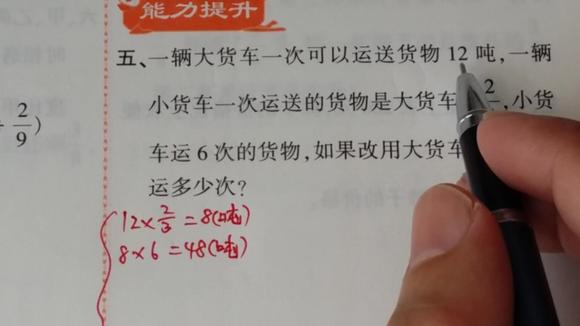 能力提升
÷ 2/9)
五、一辆大货车一次可以运送货物12吨,一辆
小货车一次运送的货物是大货车 2 ,小货
车运6次的货物,如果改用大货车
运多少次?
12×2/3=8(吨)
8×6=48(吨)